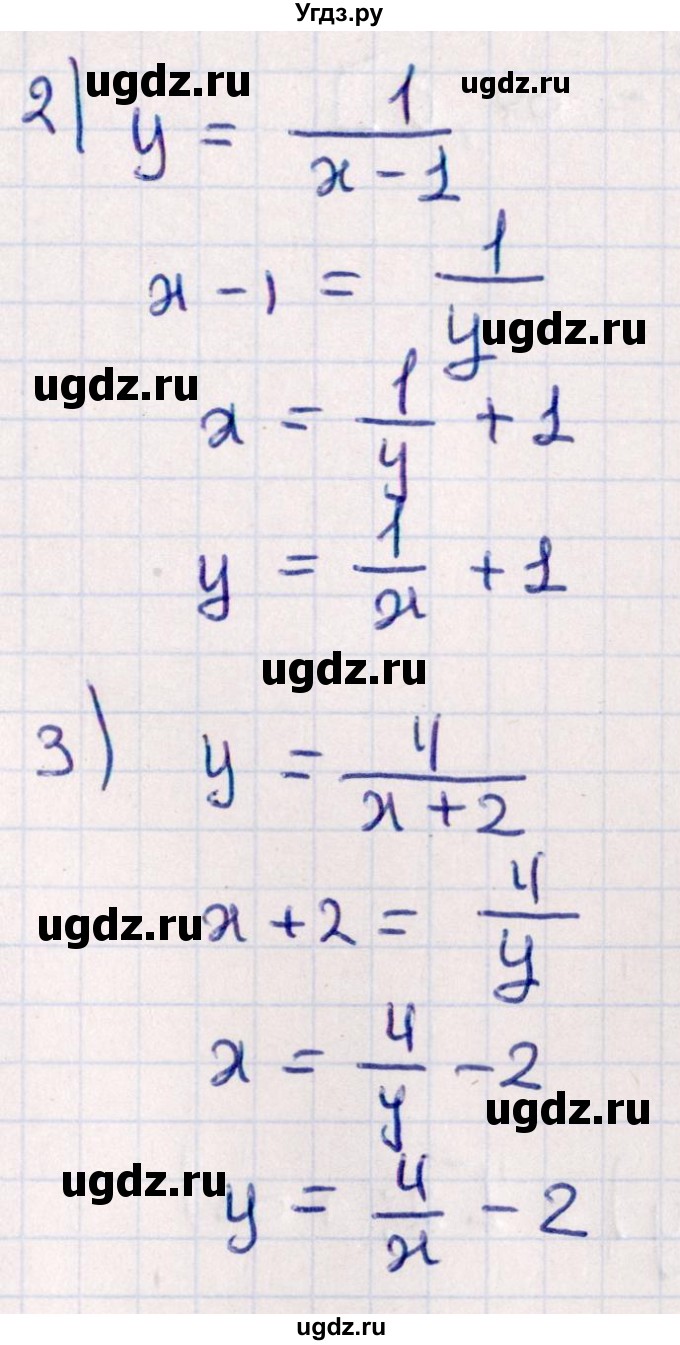 Угдз.ру
ugdz.ru ugdz.ru
2) y = 1/(x - 1)
x - 1 = 1/y
ugdz.ru
ugdz.ru
x = 1/y + 1
y = 1/x + 1
ugdz.ru
3) y = 4/(x + 2)
ugdz.ru
x + 2 = 4/y
x = 4/y - 2
ugdz.ru
ugdz.ru
y = 4/x - 2
ugdz.ru